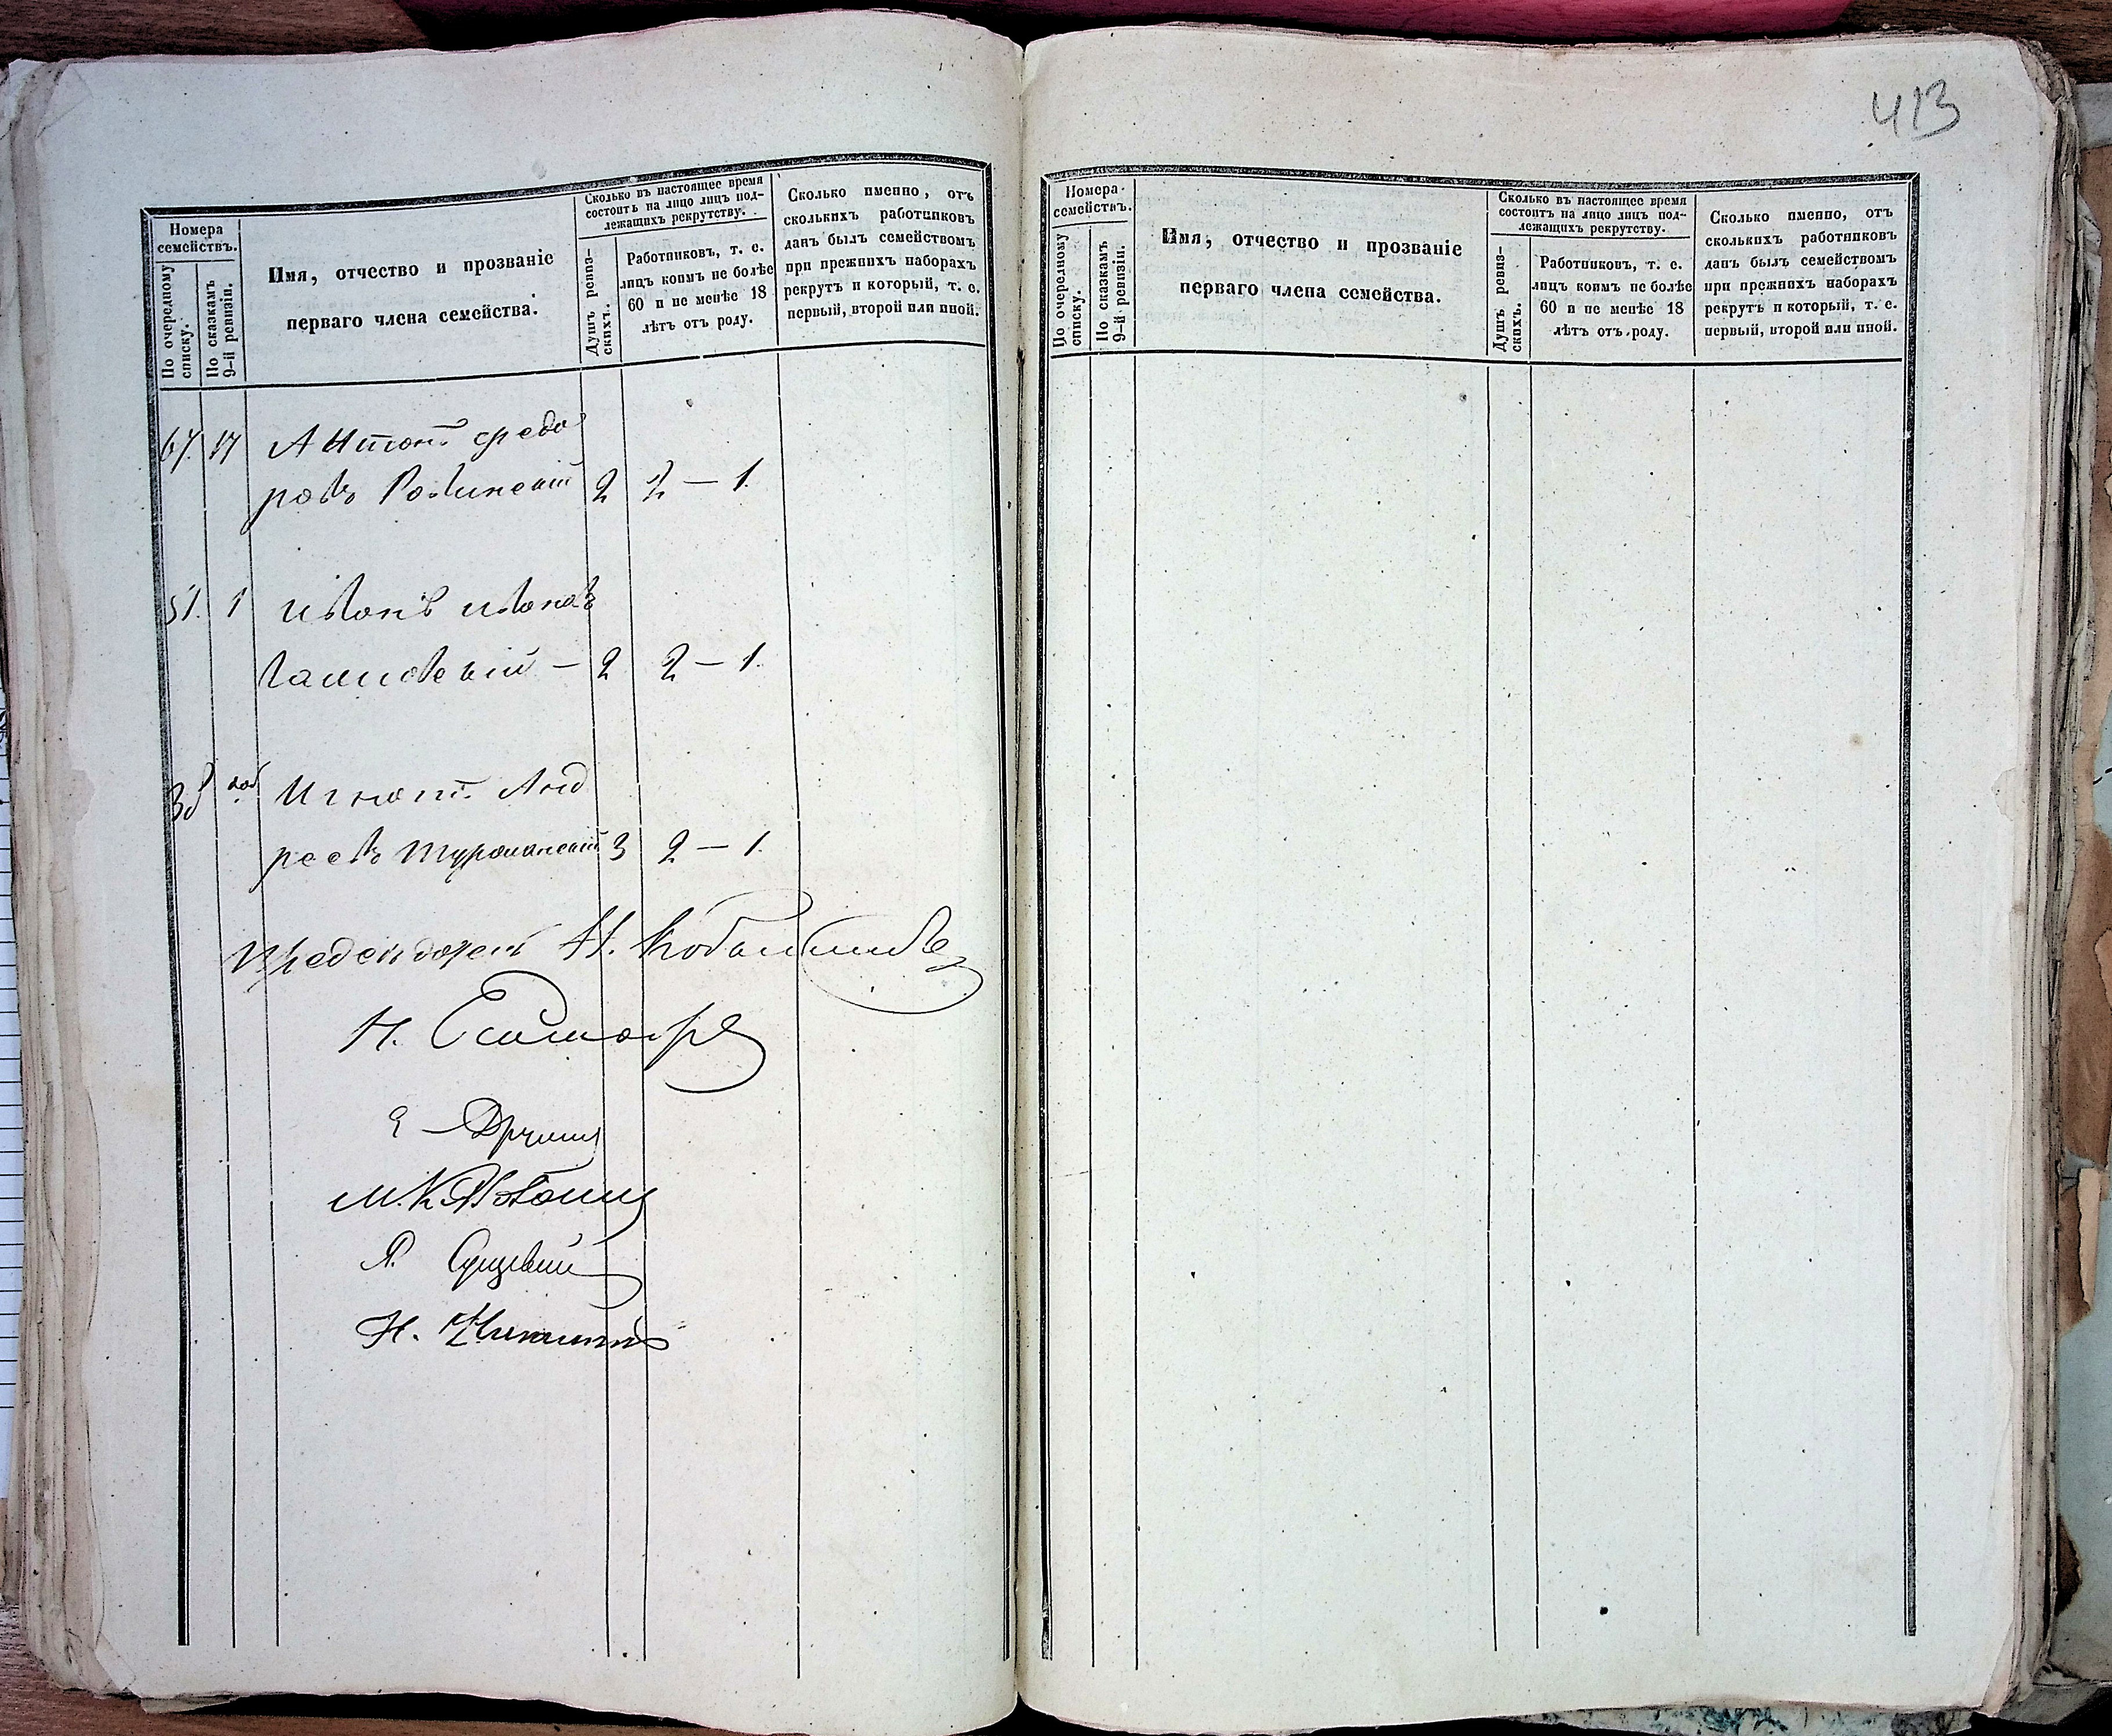 413
Номера
семействъ.
По очередному
списку.
По сказкамъ
9-й ревизіи.
Имя, отчество и прозваніе
перваго члена семейства.
Сколько въ настоящее время
состоитъ на лицо лицъ под-
лежащихъ рекрутству.
Душъ ревиз-
скихъ.
Работниковъ, т. е.
лицъ коимъ не болѣе
60 и не менѣе 18
лѣтъ отъ роду.
Сколько именно, отъ
сколькихъ работниковъ
данъ былъ семействомъ
при прежнихъ наборахъ
рекрутъ и который, т. е.
первый, второй или иной.
Антонъ Федо
ровъ 2 2 — 1.
51. 1 Иванъ Ивановъ
2 2 — 1.
Игнатъ Анд
реевъ 3 2 — 1.
Н.
Н.
М. К.
Н.
Номера
семействъ.
По очередному
списку.
По сказкамъ
9-й ревизіи.
Имя, отчество и прозваніе
перваго члена семейства.
Сколько въ настоящее время
состоитъ на лицо лицъ под-
лежащихъ рекрутству.
Душъ ревиз-
скихъ.
Работниковъ, т. е.
лицъ коимъ не болѣе
60 и не менѣе 18
лѣтъ отъ роду.
Сколько именно, отъ
сколькихъ работниковъ
данъ былъ семействомъ
при прежнихъ наборахъ
рекрутъ и который, т. е.
первый, второй или иной.